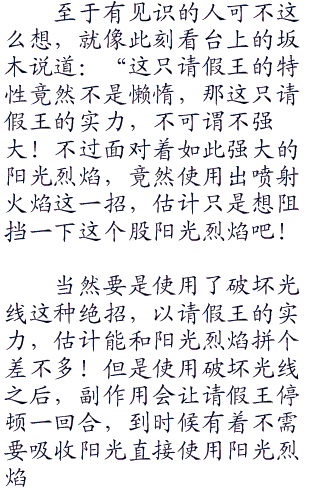 至于有见识的人可不这
么想，就像此刻看台上的坂
木说道：“这只请假王的特
性竟然不是懒惰，那这只请
假王的实力，不可谓不强
大！不过面对着如此强大的
阳光烈焰，竟然使用出喷射
火焰这一招，估计只是想阻
挡一下这个股阳光烈焰吧！
当然要是使用了破坏光
线这种绝招，以请假王的实
力，估计能和阳光烈焰拼个
差不多！但是使用破坏光线
之后，副作用会让请假王停
顿一回合，到时候有着不需
要吸收阳光直接使用阳光烈
焰